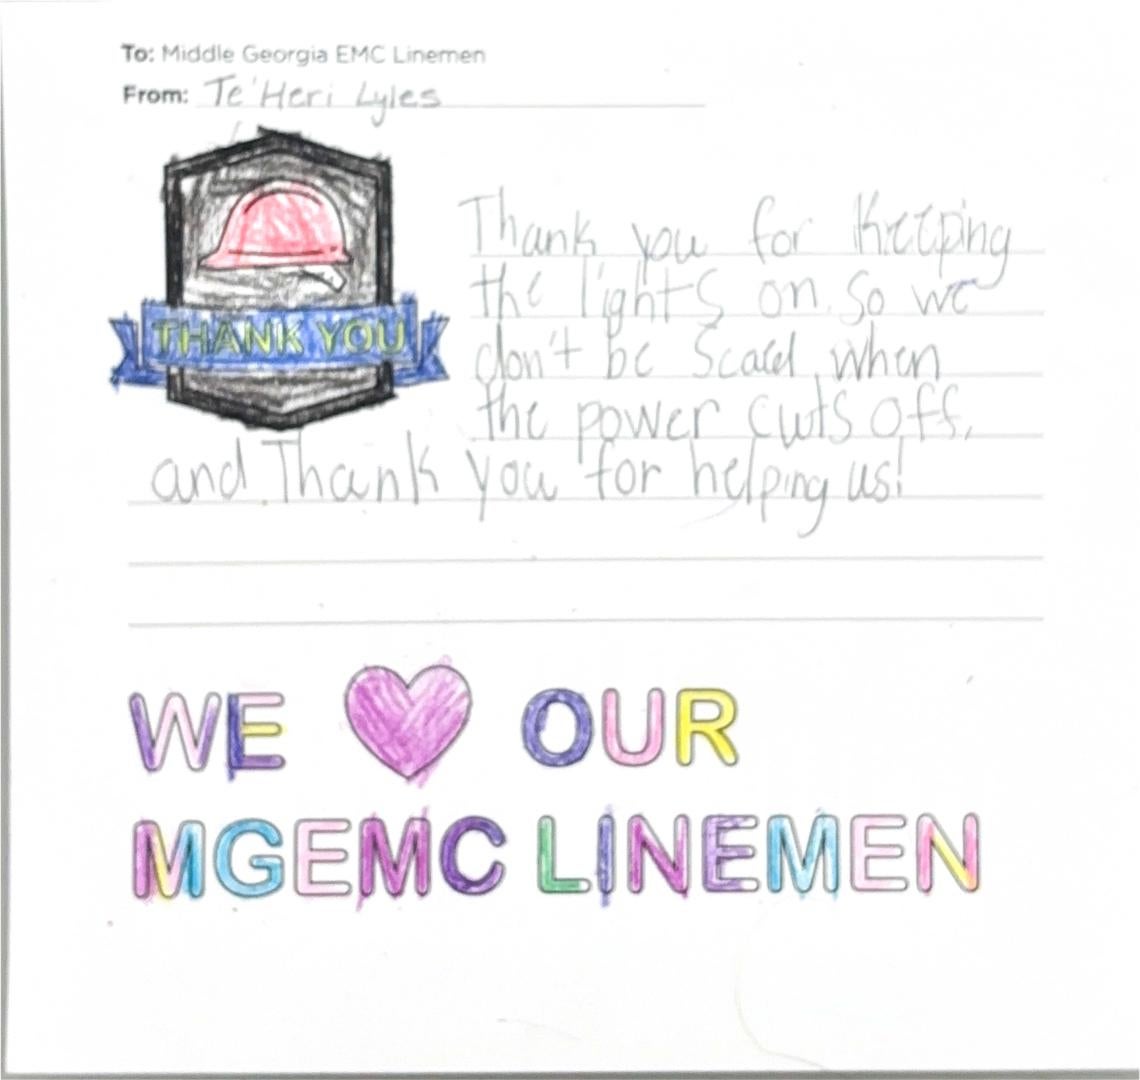 To: Middle Georgia EMC Linemen
From: Te'Heri Lyles
THANK YOU
Thank you for Keeping
the lights on. So we
don't be Scaed when
the power cuts off.
and Thank you for helping us!
WE OUR
MGEMC LINEMEN